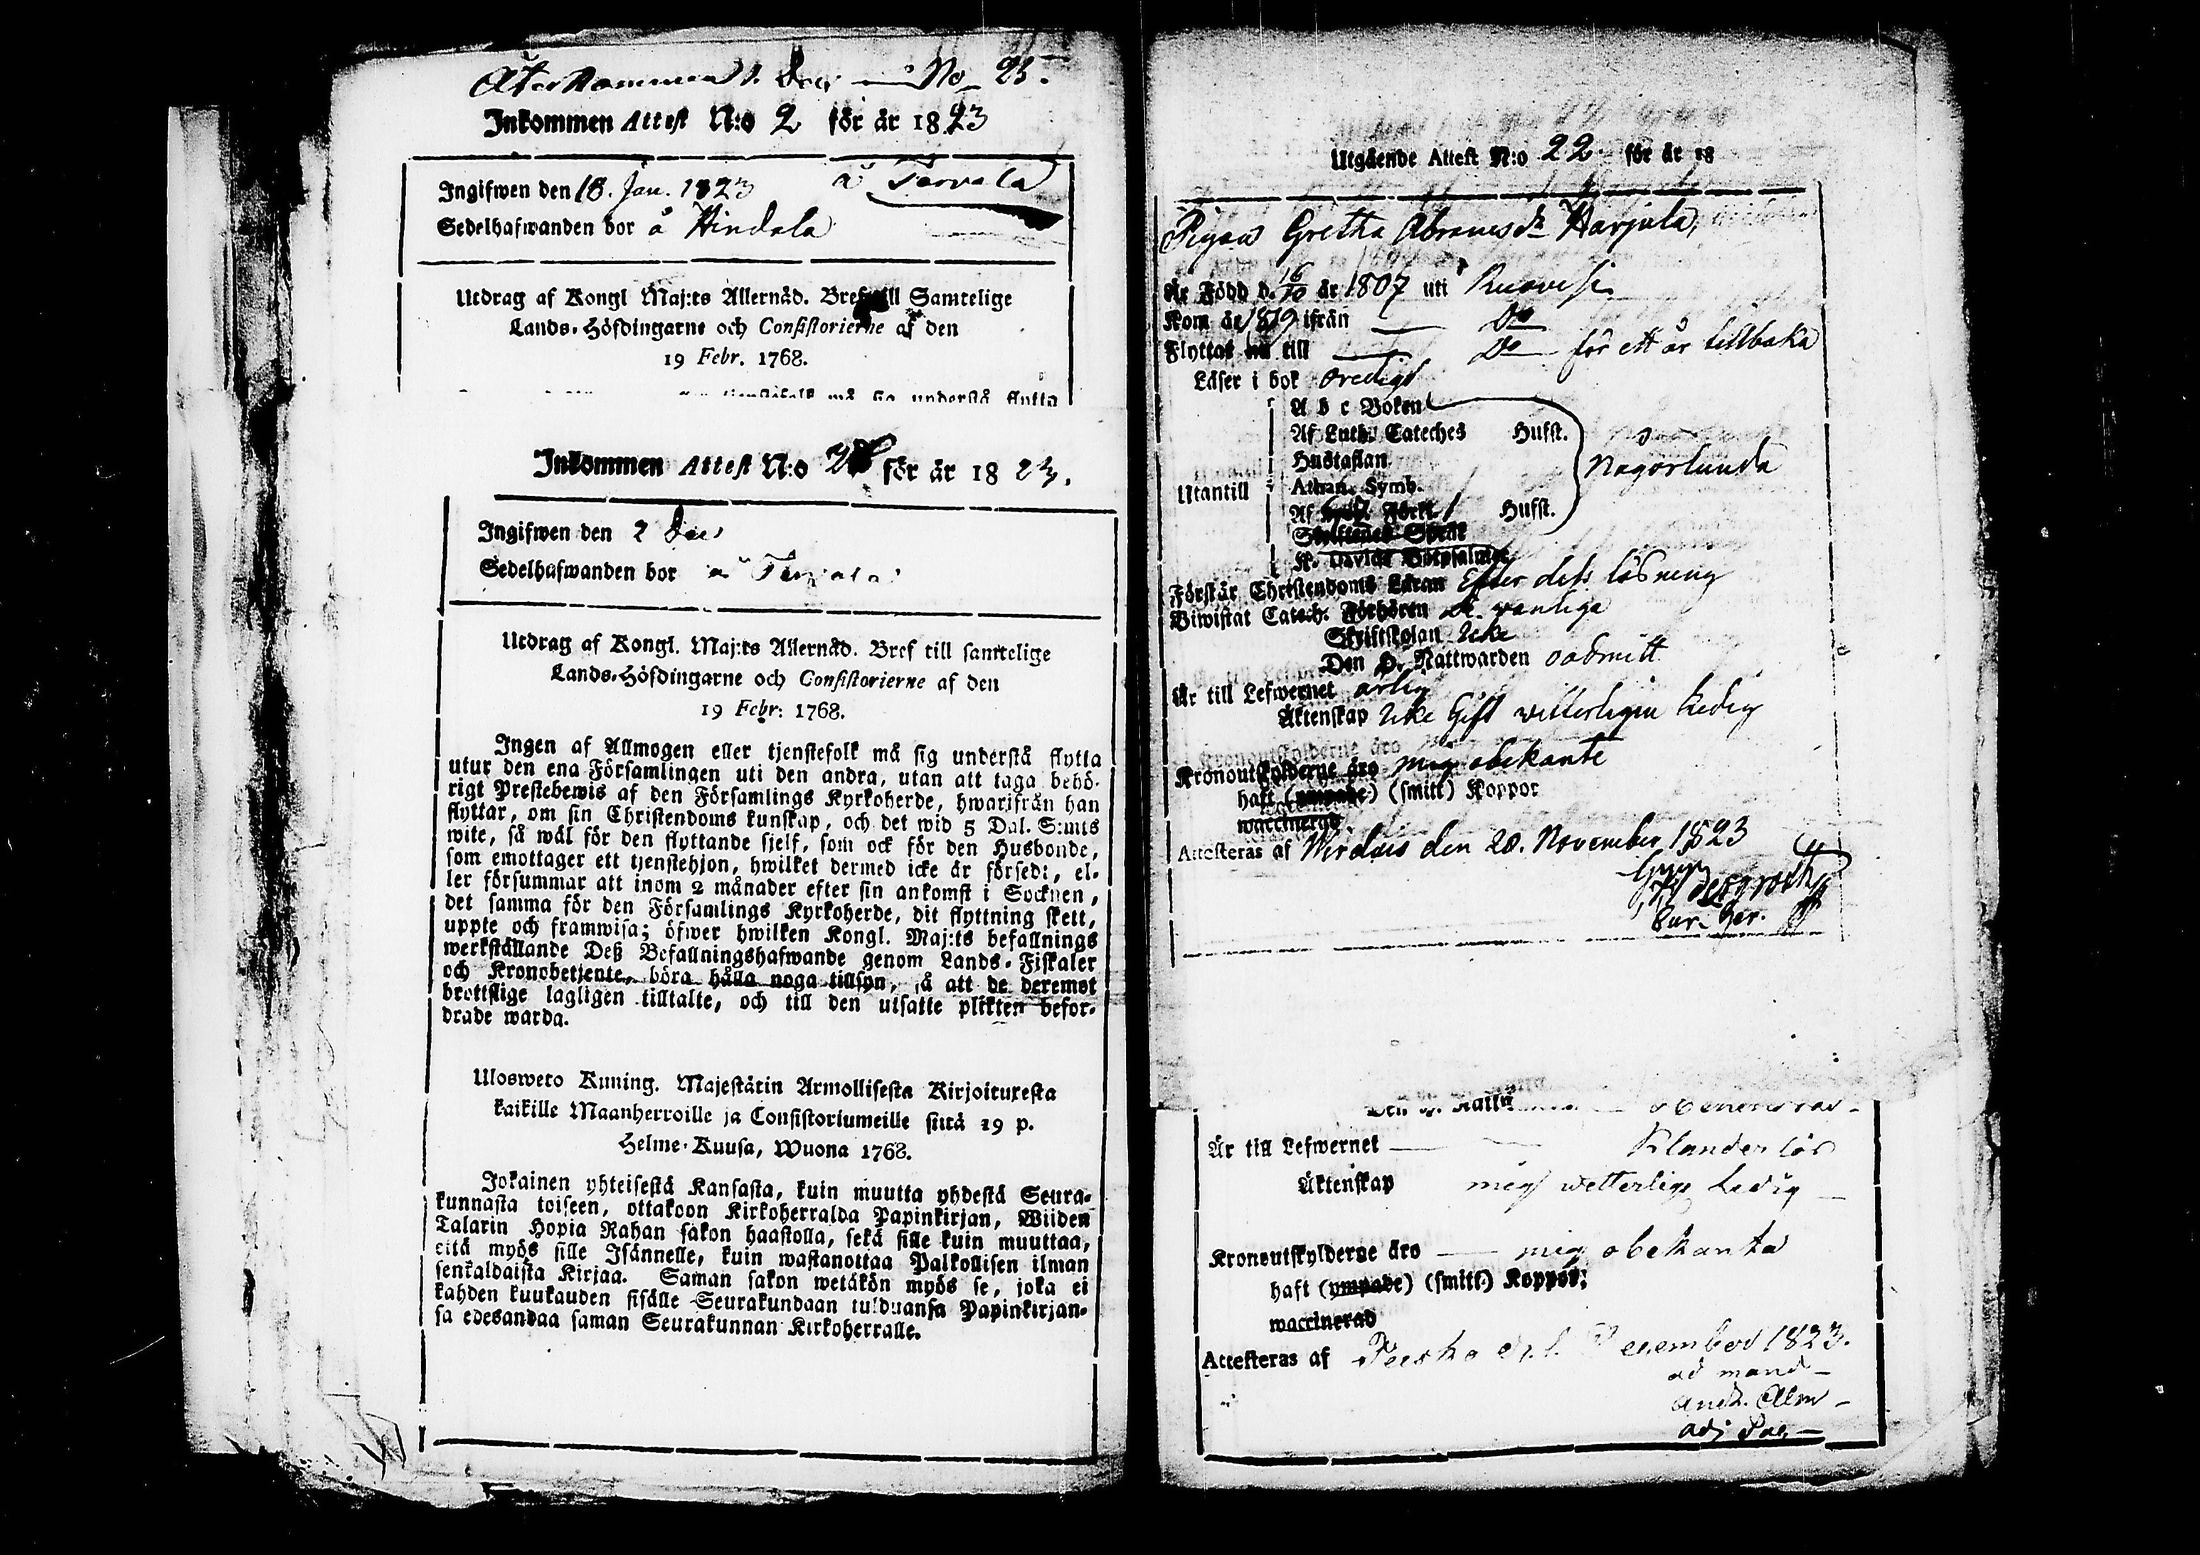 Återkommen d. Dec. — No 23.
Inkommen Attest N:o 2 för år 1823
Ingifwen den 18. Jan. 1823 å Tarvala
Sedelhafwanden bor å Hindala
Utdrag af Kongl Maj:ts Allernåd. Bref till Samtelige
Lands-Höfdingarne och Consistorierne af den
19 Febr. 1768.
tjenstefolk må sig understå flytta
Inkommen Attest N:o för år 1823.
Ingifwen den 2 Dec
Sedelhafwanden bor å
Utdrag af Kongl. Maj:ts Allernåd. Bref till samtelige
Lands-Höfdingarne och Consistorierne af den
19 Febr: 1768.
Ingen af Allmogen eller tjenstefolk må sig understå flytta
utur den ena Församlingen uti den andra, utan att taga behö-
rigt Prestebewis af den Församlings Kyrkoherde, hwarifrån han
flyttar, om sin Christendoms kunskap, och det wid 5 Dal. S:mts
wite, så wäl för den flyttande sjelf, som ock för den Husbonde,
som emottager ett tjenstehjon, hwilket dermed icke är försedt, el-
ler försummar att inom 2 månader efter sin ankomst i Socknen,
det samma för den Församlings Kyrkoherde, dit flyttning skett,
uppte och framwisa; öfwer hwilken Kongl. Maj:ts befallnings
werkställande Deß Befallningshafwande genom Lands-Fiskaler
och Kronobetjente, böra hålla noga tillsyn, så att de deremot
brottslige lagligen tilltalte, och till den utsatte plikten befor-
drade warda.
Ulosweto Kuning. Majestätin Armollisesta Kirjoituxesta
kaikille Maanherroille ja Consistoriumeille siitä 19 p.
Helme-Kuusa, Wuona 1768.
Jokainen yhteisestä Kansasta, kuin muutta yhdestä Seura-
kunnasta toiseen, ottakoon Kirkoherralda Papinkirjan, Wiiden
Talarin Hopia Rahan sakon haastolla, sekä sille kuin muuttaa,
että myös sille Isännelle, kuin wastanottaa Palkollisen ilman
senkaldaista Kirjaa. Saman sakon wetäkön myös se, joka ei
kahden kuukauden sisälle Seurakundaan tulduansa Papinkirjan-
sa edesandaa saman Seurakunnan Kirkoherralle.
Utgående Attest N:o 22 för år 18
Pigan Gretha Abramsdr Harjula,
Är Född d. 16/10 år 1807 uti Ruovesi
Kom år 1819 ifrån — Do
Flyttas nu till — Do för ett år tillbaka
Läser i bok oredigt
A b c Boken
Af Luth. Cateches Hufst.
Hustaflan
Någorlunda
Utantill Athan. Symb.
Af Förkl. Hufst.
Skriftenes Språk
K. Davids Botpsalmer
Förstår Christendoms Läran Efter dess läsning
Biwistat Catech. Förhören de wanliga
Skriftskolan Icke
Den H. Nattwarden oadmitt
Är till Lefwernet ärlig
Äktenskap Icke Gift witterligen Ledig
Kronoutskylderne äro mig obekante
haft (ympade) (smitt) Koppor
waccinerad.
Attesteras af Wirdois den 28. November 1823
Den H. Nattw
Är till Lefwernet — Klanderlös
Äktenskap mig wetterlig Ledig —
Kronoutskylderne äro — mig obekanta
haft (ympade) (smitt.) Koppor:
waccinerad
Attesteras af d. 1. December 1823.
ad mand —
And. Alm —
adj Pas —